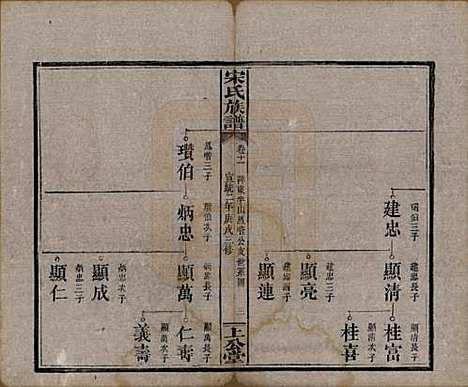 建忠
顯伯三子
顯清
建忠長子
顯亮
建忠三子
顯連
建忠四子
桂富
顯清長子
桂喜
顯清次子
宋氏族譜
卷十一
宣統二年庚戌三修
上公堂
瓚伯
三子
炳忠
瓚伯次子
顯萬
炳忠長子
顯成
炳忠次子
顯仁
炳忠三子
仁壽
顯萬長子
義壽
顯萬次子